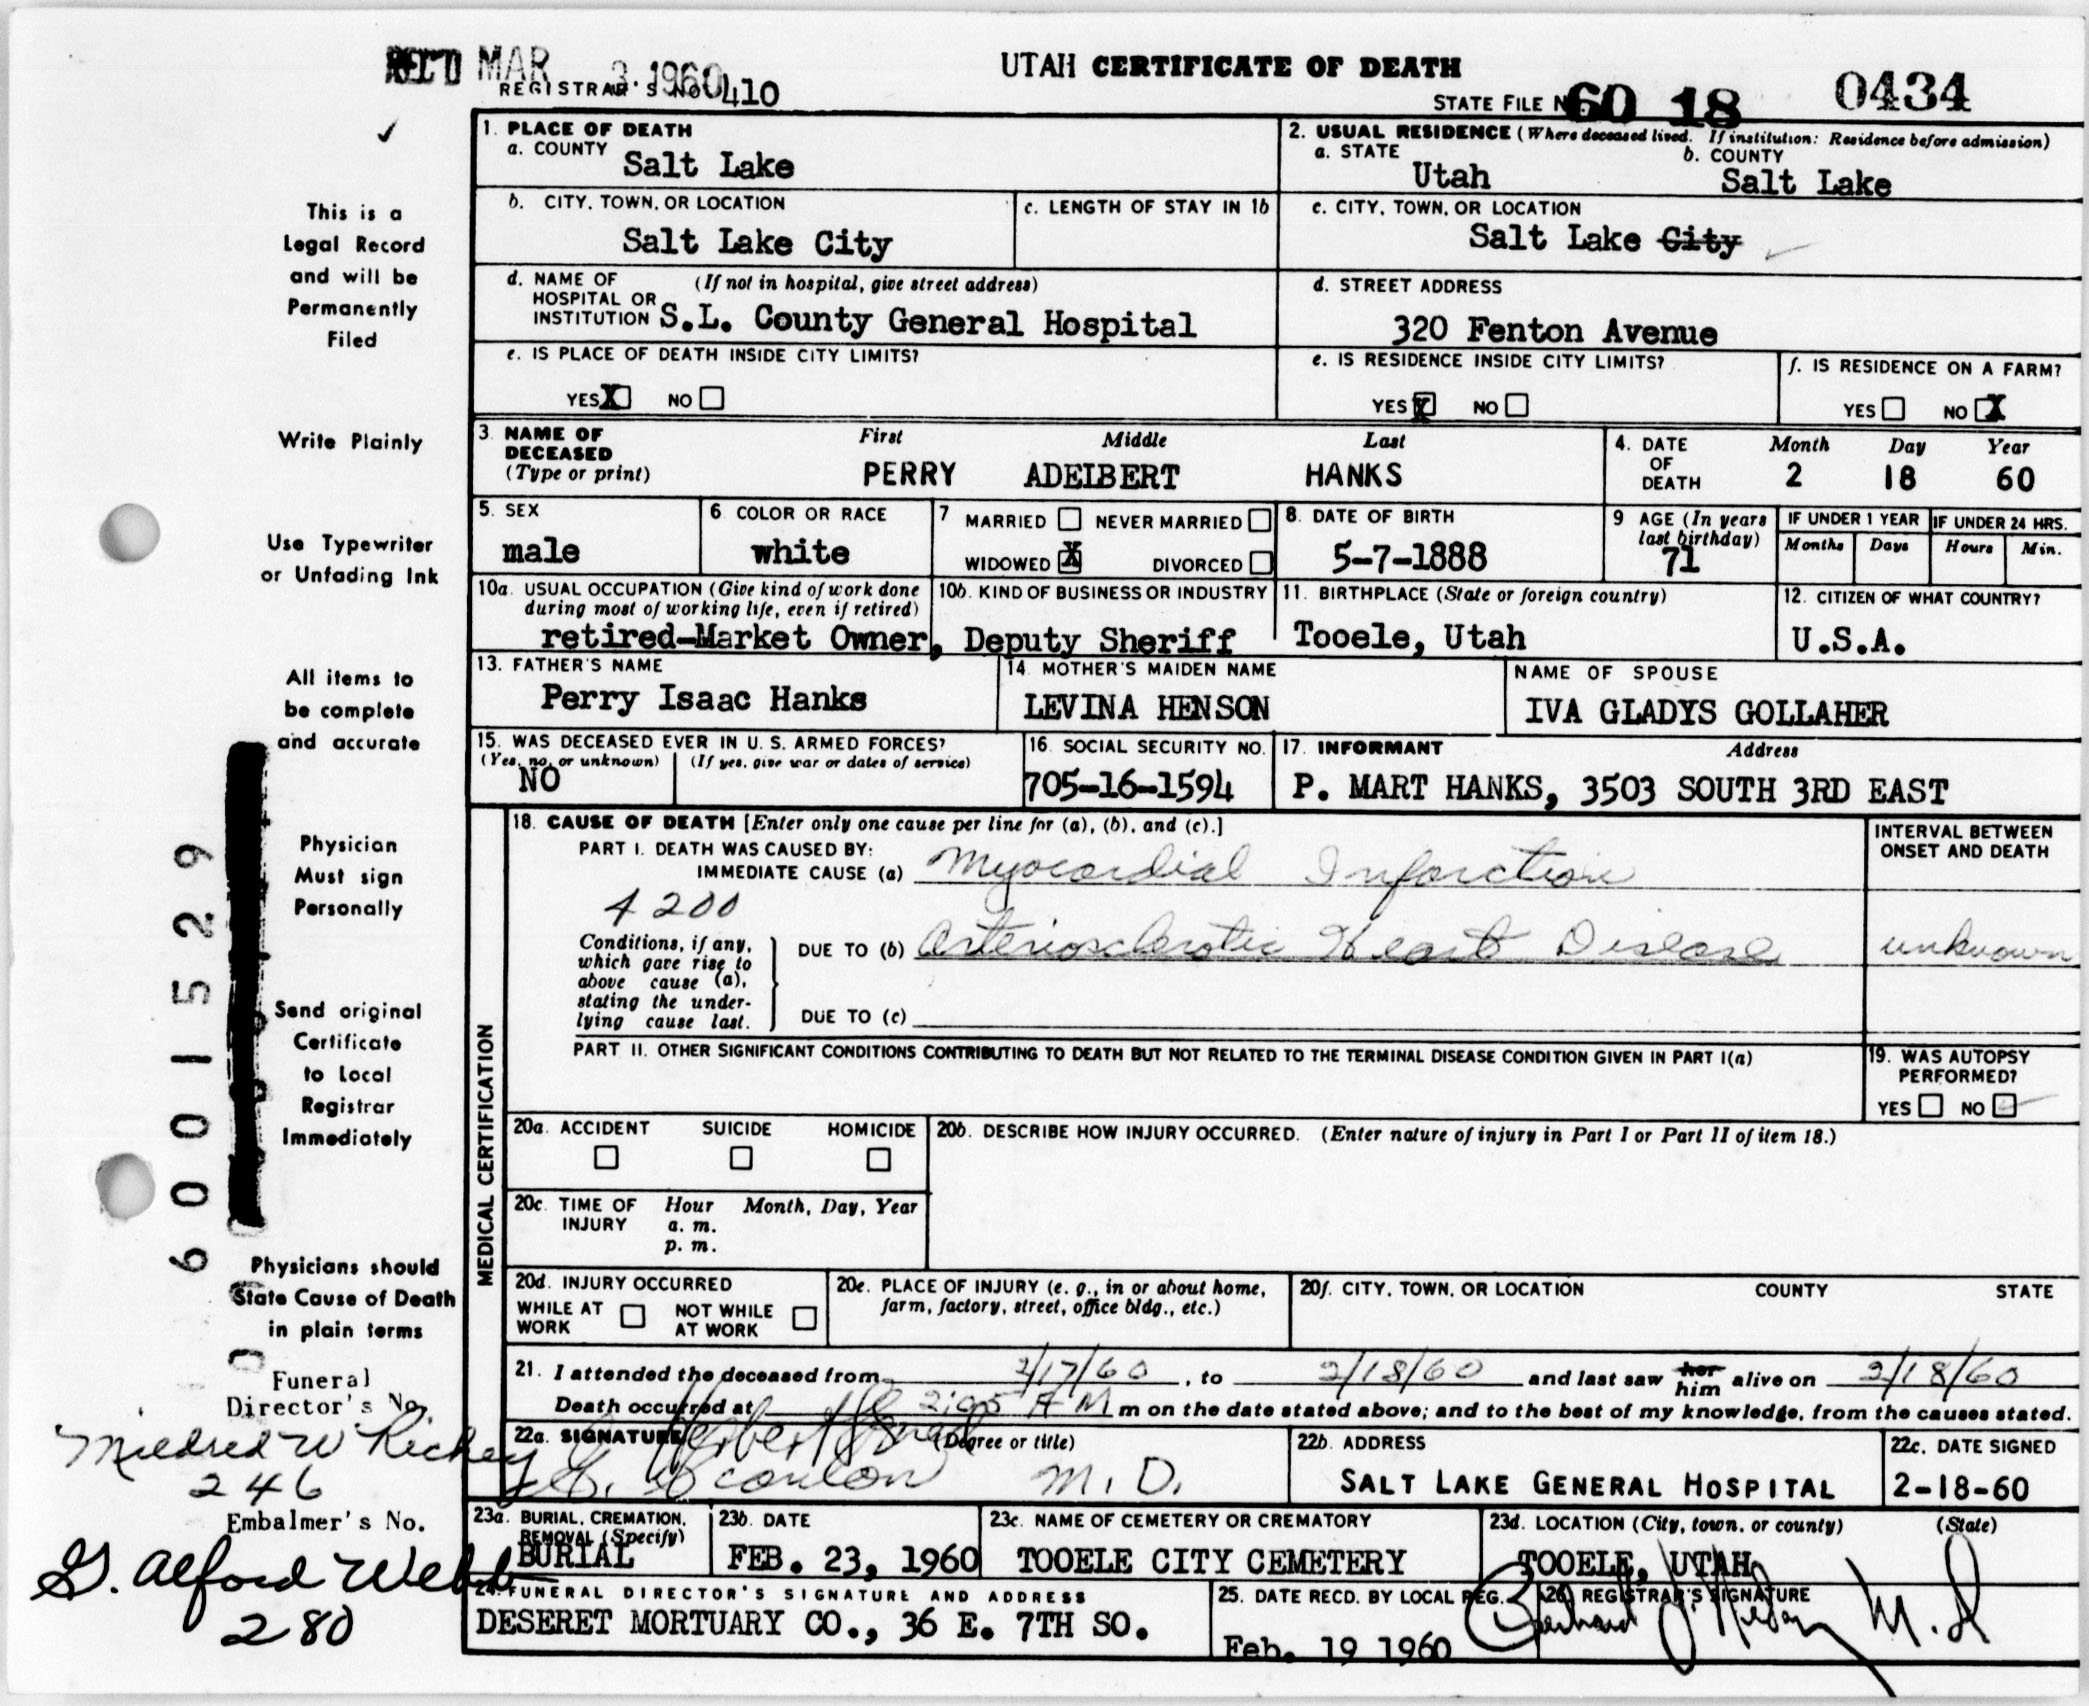 REC'D MAR 3 1960
REGISTRAR'S No 410
UTAH CERTIFICATE OF DEATH
STATE FILE N 60 18 0434
This is a
Legal Record
and will be
Permanently
Filed
Write Plainly
Use Typewriter
or Unfading Ink
All items to
be complete
and accurate
Physician
Must sign
Personally
Send original
Certificate
to Local
Registrar
Immediately
Physicians should
State Cause of Death
in plain terms
Funeral
Director's No.
Mildred W Rickey
246
Embalmer's No.
G. Alford Webb
280
6001529
1. PLACE OF DEATH
a. COUNTY
Salt Lake
2. USUAL RESIDENCE (Where deceased lived. If institution: Residence before admission)
a. STATE
Utah
b. COUNTY
Salt Lake
b. CITY, TOWN, OR LOCATION
Salt Lake City
c. LENGTH OF STAY IN 1b
c. CITY, TOWN, OR LOCATION
Salt Lake City
d. NAME OF (If not in hospital, give street address)
HOSPITAL OR
INSTITUTION S.L. County General Hospital
d. STREET ADDRESS
320 Fenton Avenue
e. IS PLACE OF DEATH INSIDE CITY LIMITS?
YES X NO
e. IS RESIDENCE INSIDE CITY LIMITS?
YES X NO
f. IS RESIDENCE ON A FARM?
YES NO X
3. NAME OF First Middle Last
DECEASED
(Type or print) PERRY ADELBERT HANKS
4. DATE Month Day Year
OF
DEATH 2 18 60
5. SEX
male
6. COLOR OR RACE
white
7 MARRIED NEVER MARRIED
WIDOWED X DIVORCED
8. DATE OF BIRTH
5-7-1888
9 AGE (In years
last birthday)
71
IF UNDER 1 YEAR
Months Days
IF UNDER 24 HRS.
Hours Min.
10a. USUAL OCCUPATION (Give kind of work done
during most of working life, even if retired)
10b. KIND OF BUSINESS OR INDUSTRY
retired-Market Owner, Deputy Sheriff
11. BIRTHPLACE (State or foreign country)
Tooele, Utah
12. CITIZEN OF WHAT COUNTRY?
U.S.A.
13. FATHER'S NAME
Perry Isaac Hanks
14. MOTHER'S MAIDEN NAME
LEVINA HENSON
NAME OF SPOUSE
IVA GLADYS GOLLAHER
15. WAS DECEASED EVER IN U.S. ARMED FORCES?
(Yes, no, or unknown) (If yes, give war or dates of service)
NO
16. SOCIAL SECURITY NO.
705-16-1594
17. INFORMANT Address
P. MART HANKS, 3503 SOUTH 3RD EAST
MEDICAL CERTIFICATION
18. CAUSE OF DEATH [Enter only one cause per line for (a), (b), and (c).]
PART I. DEATH WAS CAUSED BY:
IMMEDIATE CAUSE (a) Myocardial Infarction
4200
INTERVAL BETWEEN
ONSET AND DEATH
Conditions, if any,
which gave rise to
above cause (a),
stating the under-
lying cause last.
DUE TO (b) Arteriosclerotic Heart Disease unknown
DUE TO (c)
PART II. OTHER SIGNIFICANT CONDITIONS CONTRIBUTING TO DEATH BUT NOT RELATED TO THE TERMINAL DISEASE CONDITION GIVEN IN PART I(a)
19. WAS AUTOPSY
PERFORMED?
YES NO
20a. ACCIDENT SUICIDE HOMICIDE
20b. DESCRIBE HOW INJURY OCCURRED. (Enter nature of injury in Part I or Part II of item 18.)
20c. TIME OF Hour Month, Day, Year
INJURY a. m.
p. m.
20d. INJURY OCCURRED
WHILE AT NOT WHILE
WORK AT WORK
20e. PLACE OF INJURY (e. g., in or about home,
farm, factory, street, office bldg., etc.)
20f. CITY, TOWN, OR LOCATION COUNTY STATE
21. I attended the deceased from 2/17/60, to 2/18/60 and last saw her him alive on 2/18/60
Death occurred at 2:05 A M m on the date stated above; and to the best of my knowledge, from the causes stated.
22a. SIGNATURE (Degree or title)
Scanlon M.D.
22b. ADDRESS
SALT LAKE GENERAL HOSPITAL
22c. DATE SIGNED
2-18-60
23a. BURIAL, CREMATION,
REMOVAL (Specify)
BURIAL
23b. DATE
FEB. 23, 1960
23c. NAME OF CEMETERY OR CREMATORY
TOOELE CITY CEMETERY
23d. LOCATION (City, town, or county) (State)
TOOELE, UTAH
24. FUNERAL DIRECTOR'S SIGNATURE AND ADDRESS
DESERET MORTUARY CO., 36 E. 7TH SO.
25. DATE RECD. BY LOCAL REG.
Feb. 19 1960
26. REGISTRAR'S SIGNATURE
M.D